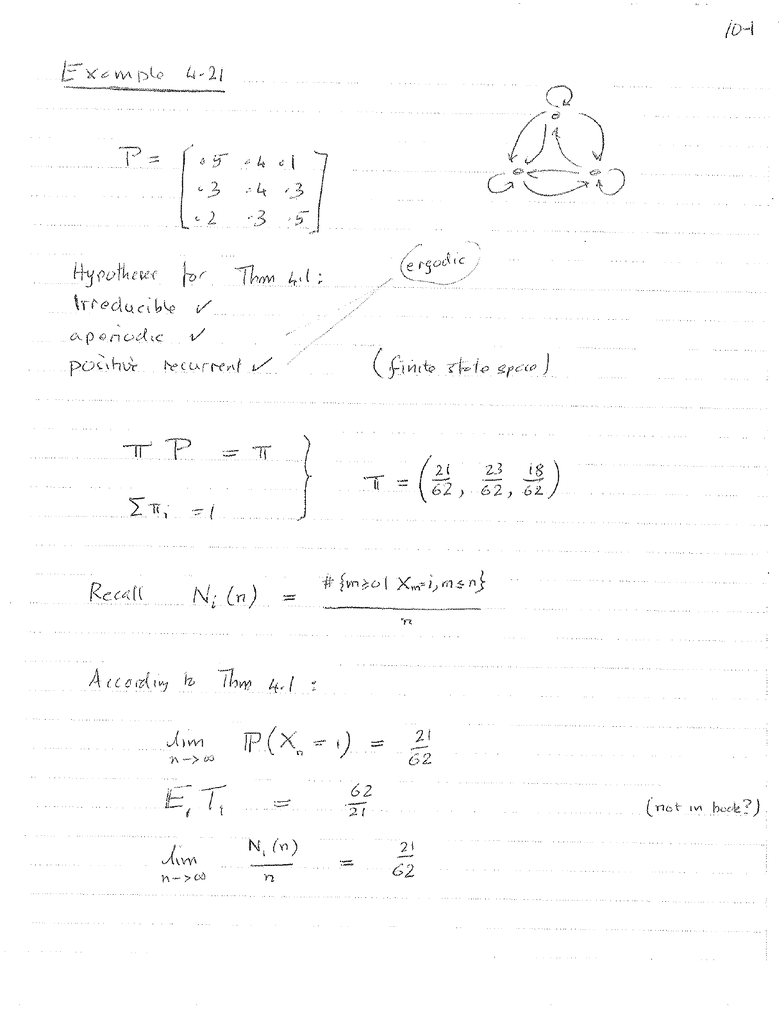 10-1
Example 4-21
P = [ .5 .4 .1
.3 .4 .3
.2 .3 .5 ]
Hypotheses for Thm 4.1:
(ergodic)
Irreducible ✓
aperiodic ✓
positive recurrent ✓ (finite state space)
π P = π
Σ πᵢ = 1 } π = (21/62, 23/62, 18/62)
Recall Nᵢ(n) = #{m≥0 | Xₘ=i, m≤n} / n
According to Thm 4.1:
lim n->∞ ℙ(Xₙ = 1) = 21/62
E₁ T₁ = 62/21 (not in book?)
lim n->∞ N₁(n)/n = 21/62